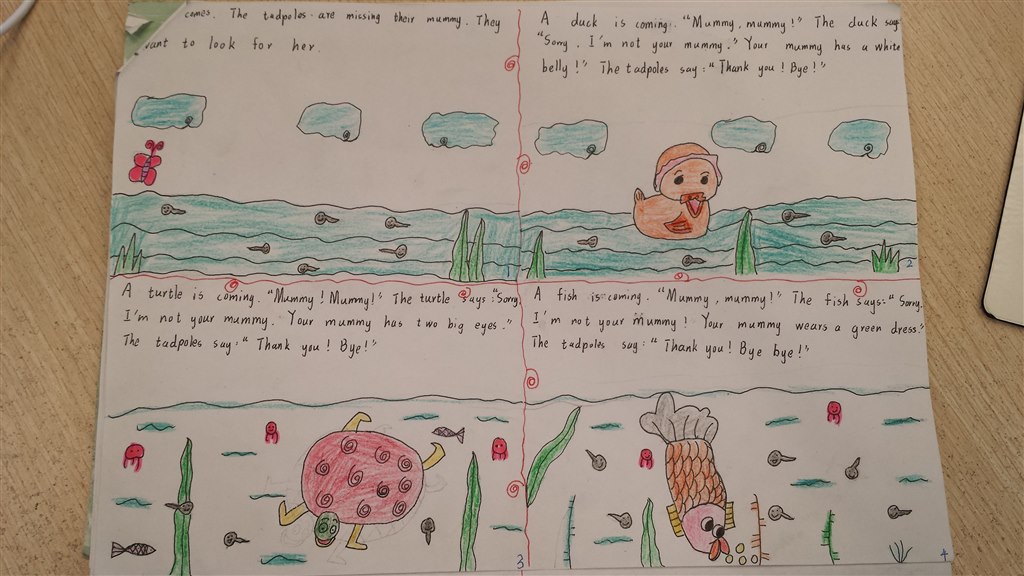 comes. The tadpoles are missing their mummy. They
want to look for her.
A duck is coming. "Mummy, mummy!" The duck says
"Sorry, I'm not your mummy." Your mummy has a white
belly!" The tadpoles say: "Thank you! Bye!"
2
A turtle is coming. "Mummy! Mummy!" The turtle says: "Sorry,
I'm not your mummy. Your mummy has two big eyes."
The tadpoles say: "Thank you! Bye!"
3
A fish is coming. "Mummy, mummy!" The fish says: "Sorry,
I'm not your mummy! Your mummy wears a green dress."
The tadpoles say: "Thank you! Bye bye!"
4